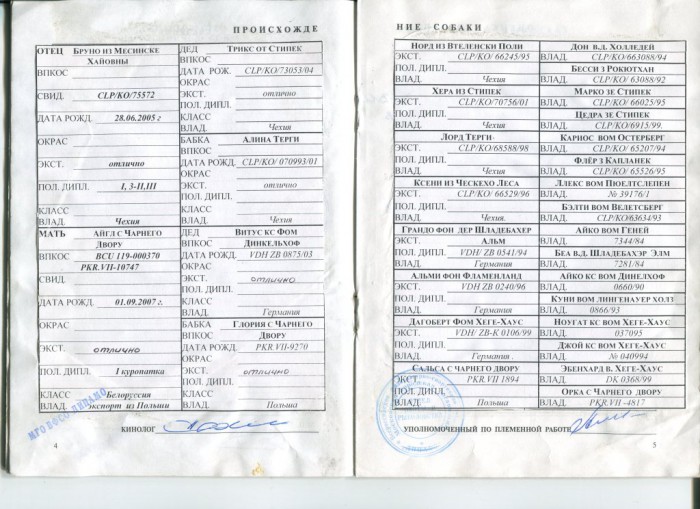 ПРОИСХОЖДЕ
ОТЕЦ Бруно из Месинске
Хайовны
ВПКОС
СВИД. CLP/KO/75572
ДАТА РОЖД. 28.06.2005 г
ОКРАС
ЭКСТ. отлично
ПОЛ. ДИПЛ. I, 3-II,III
КЛАСС
ВЛАД. Чехия
МАТЬ Айгл с Чарнего
Двору
ВПКОС BCU 119-000370
PKR.VII-10747
СВИД.
ДАТА РОЖД. 01.09.2007 г.
ОКРАС
ЭКСТ. отлично
ПОЛ. ДИПЛ. I куропатка
КЛАСС Белоруссия
ВЛАД. экспорт из Польши
ДЕД Трикс от Стипек
ВПКОС
ДАТА РОЖ. CLP/KO/73053/04
ОКРАС
ЭКСТ. отлично
ПОЛ. ДИПЛ.
КЛАСС
ВЛАД. Чехия
БАБКА Алина Терги
ВПКОС
ДАТА РОЖД. CLP/KO/ 070993/01
ОКРАС
ЭКСТ. отлично
ПОЛ. ДИПЛ.
КЛАСС
ВЛАД. Чехия
ДЕД Витус кс Фом
ВПКОС Динкельхоф
ДАТА РОЖД. VDH ZB 0875/03
ОКРАС
ЭКСТ. отлично
ПОЛ. ДИПЛ.
КЛАСС
ВЛАД. Германия
БАБКА Глория с Чарнего
ВПКОС Двору
ДАТА РОЖД. PKR.VII-9270
ОКРАС
ЭКСТ. отлично
ПОЛ. ДИПЛ.
КЛАСС
ВЛАД. Польша
КИНОЛОГ
4
НИЕ СОБАКИ
Норд из Втеленски Поли
ЭКСТ. CLP/KO/ 66245/95
ПОЛ. ДИПЛ.
ВЛАД. Чехия
Хера из Стипек
ЭКСТ. CLP/KO/70756/01
ПОЛ. ДИПЛ.
ВЛАД. Чехия
Лорд Терги
ЭКСТ. CLP/KO/68588/98
ПОЛ. ДИПЛ.
ВЛАД. Чехия
Ксени из Ческехо Леса
ЭКСТ. CLP/KO/ 66529/96
ПОЛ. ДИПЛ.
ВЛАД. Чехия.
Грандо фон дер Шладебахер
ЭКСТ. Альм
ПОЛ. ДИПЛ. VDH/ ZB 0541/94
ВЛАД. Германия
Альми фон Фламенланд
ЭКСТ. VDH ZB 0240/96
ПОЛ. ДИПЛ.
ВЛАД. Германия
Дагоберт Фом Хеге-Хаус
ЭКСТ. VDH/ ZB-K 0106/99
ПОЛ. ДИПЛ.
ВЛАД. Германия .
Сальса с Чарнего двору
ЭКСТ. PKR.VII 1894
ПОЛ. ДИПЛ.
ВЛАД Польша
Дон в.д. Холледей
ВЛАД. CLP/KO/663088/94
Бесси з Рокютхан
ВЛАД. CLP/KO/ 63088/92
Марко зе Стипек
ВЛАД. CLP/KO/ 66025/95
Цедра зе Стипек
ВЛАД. CLP/KO/6915/99.
Карнос вом Остерберг
ВЛАД. CLP/KO/ 65207/94
Флёр з Капланек
ВЛАД. CLP/KO/ 65526/95
Ллекс вом Пюелтслепен
ВЛАД. № 39176/1
Бэлти вом Велетсберг
ВЛАД. CLP/KO/63634/93
Айко вом Геней
ВЛАД. 7344/84
Беа в.д. Шладебахэр Элм
ВЛАД. 7281/84
Айко кс вом Динелхоф
ВЛАД. 0660/90
Куни вом лингенауер холз
ВЛАД. 0866/93
Ноугат кс вом Хеге-Хаус
ВЛАД. 037095
Джой кс вом Хеге-Хаус
ВЛАД. № 040994
Эбенхард в. Хеге-Хаус
ВЛАД. DK 0368/99
Орка с Чарнего двору
ВЛАД. PKR.VII -4817
УПОЛНОМОЧЕННЫЙ ПО ПЛЕМЕННОЙ РАБОТЕ
5